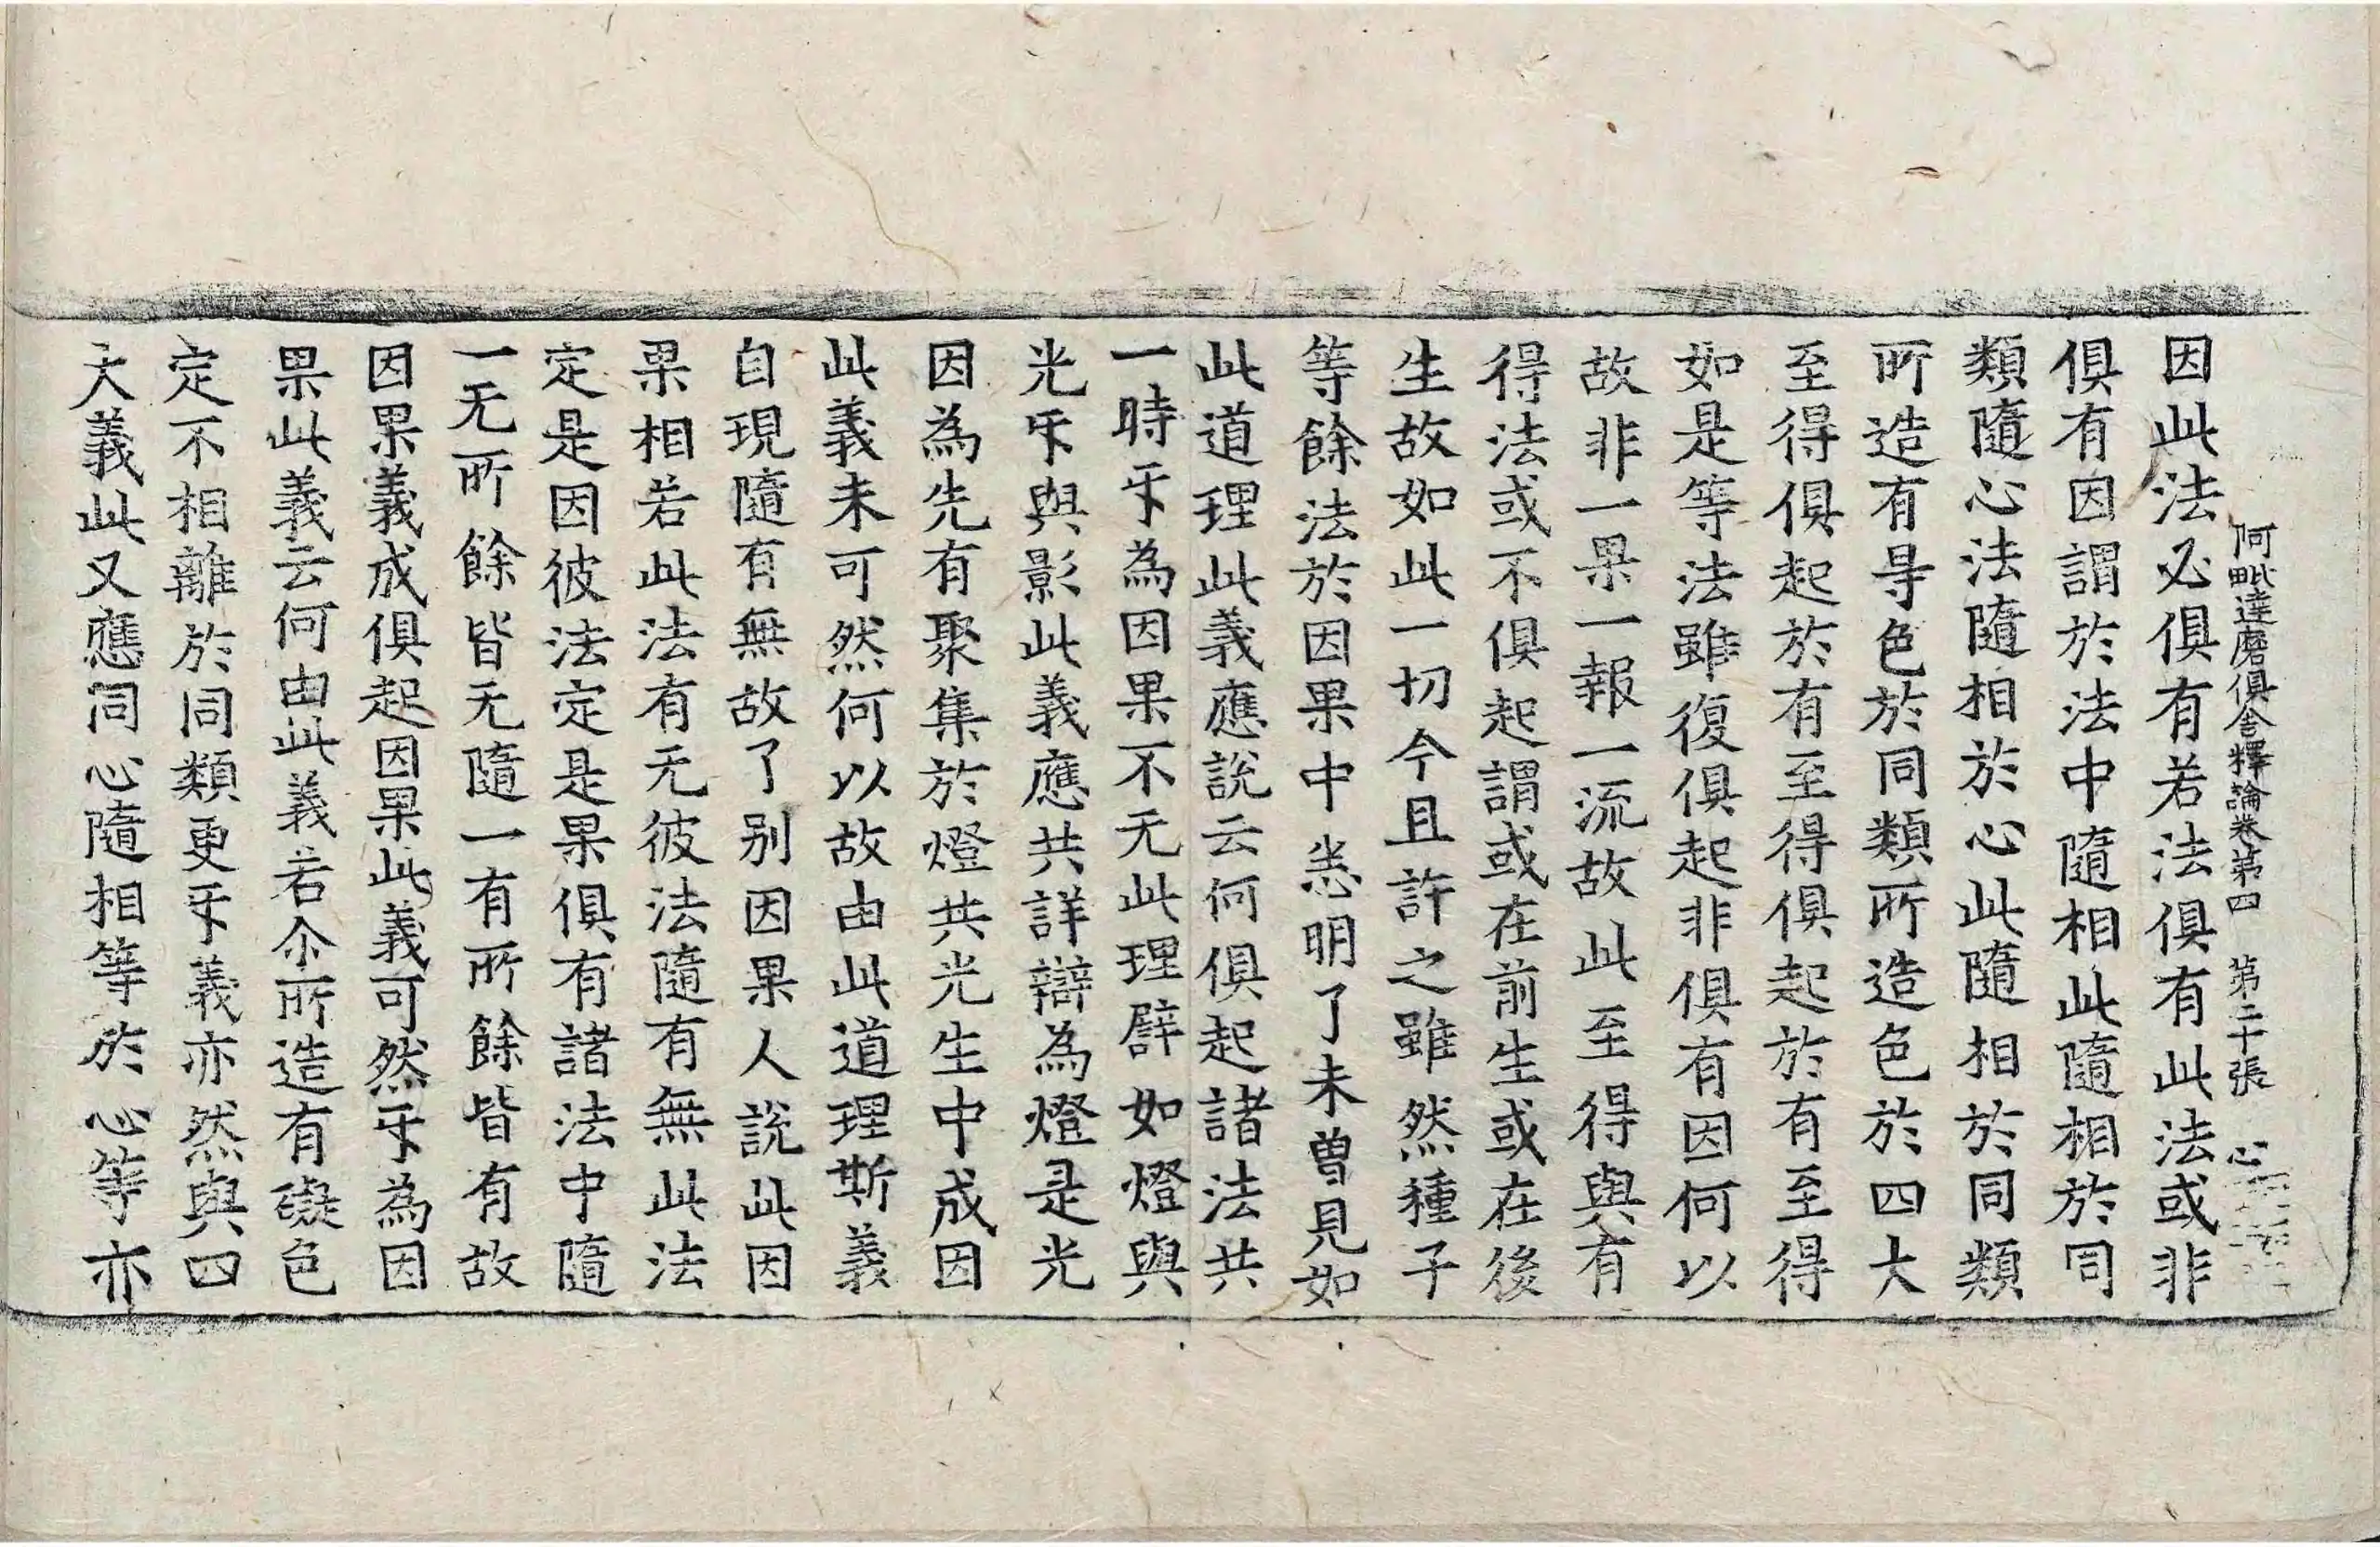 阿毗達磨俱舍釋論卷第四　第二十張　心
因此法必俱有若法俱有此法或非
俱有因謂於法中隨相此隨相於同
類隨心法隨相於心此隨相於同類
所造有㝵色於同類所造色於四大
至得俱起於有至得俱起於有至得
如是等法雖復俱起非俱有因何以
故非一果一報一流故此至得與有
得法或不俱起謂或在前生或在後
生故如此一切今且許之雖然種子
等餘法於因果中悉明了未曽見如
此道理此義應說云何俱起諸法共
一時㸦為因果不无此理譬如燈與
光㸦與影此義應共詳辯為燈是光
因為先有聚集於燈共光生中成因
此義未可然何以故由此道理斯義
自現隨有無故了別因果人說此因
果相若此法有无彼法隨有無此法
定是因彼法定是果俱有諸法中隨
一无所餘皆无隨一有所餘皆有故
因果義成俱起因果此義可然㸦為因
果此義云何由此義若尒所造有礙色
定不相離於同類更㸦義亦然與四
大義此又應同心隨相等於心等亦